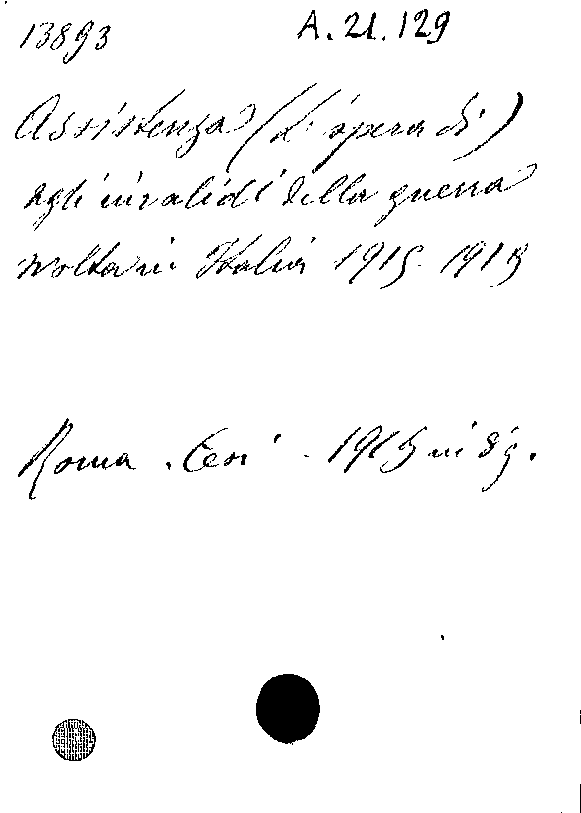 13893 A.21.129
Assistenza (L'opera di)
agli invalidi della guerra
svolta in Italia 1915-1919
Roma. Ceri - 1919 in 8º.